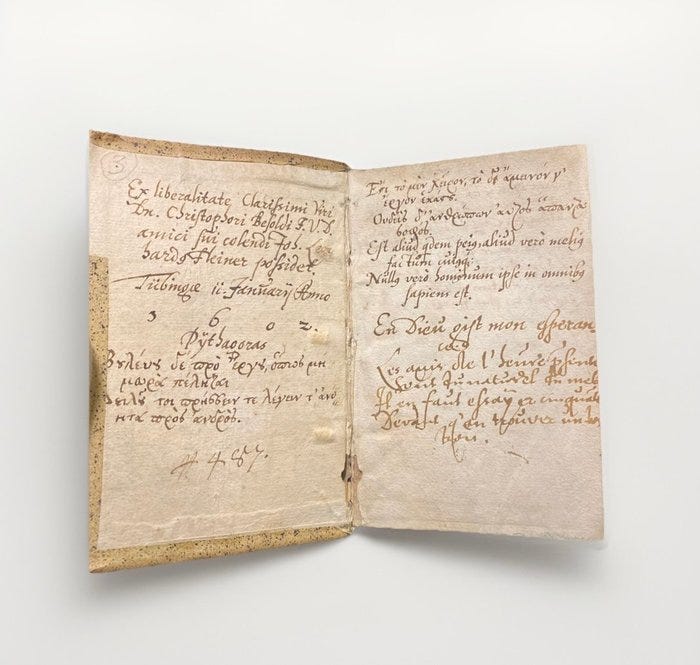 3
Ex liberalitate Clarissimi Viri
Dn. Christophori Besoldi J.V.D.
amici sui colendi Joh.
hards Steiner possidet.
Tubingæ 11. Januarij Anno
6 0 2.
Pythagoras
δὲ πρὸ ἔργε, ὅπως μη
μωρὰ πέληται
τοι πράσσειν τε λέγειν τ' ἀνό-
ητα πρὸς ἀνδρός.
4487.
τὸ μὲν χεῖρον, τὸ δὲ ἄμεινον
ἔργον
Οὐδεὶς δ' ἀνθρώπων αὐτὸς ἅπαντα
σοφός.
Est aliud qdem peius aliud verò melius
factum
Nullus verò hominum ipse in omnibus
sapiens est.
En Dieu gist mon esperan
ce
Les amis de l'heure
Il en faut essayer cinquante
Devant q'en trouver un
bon.